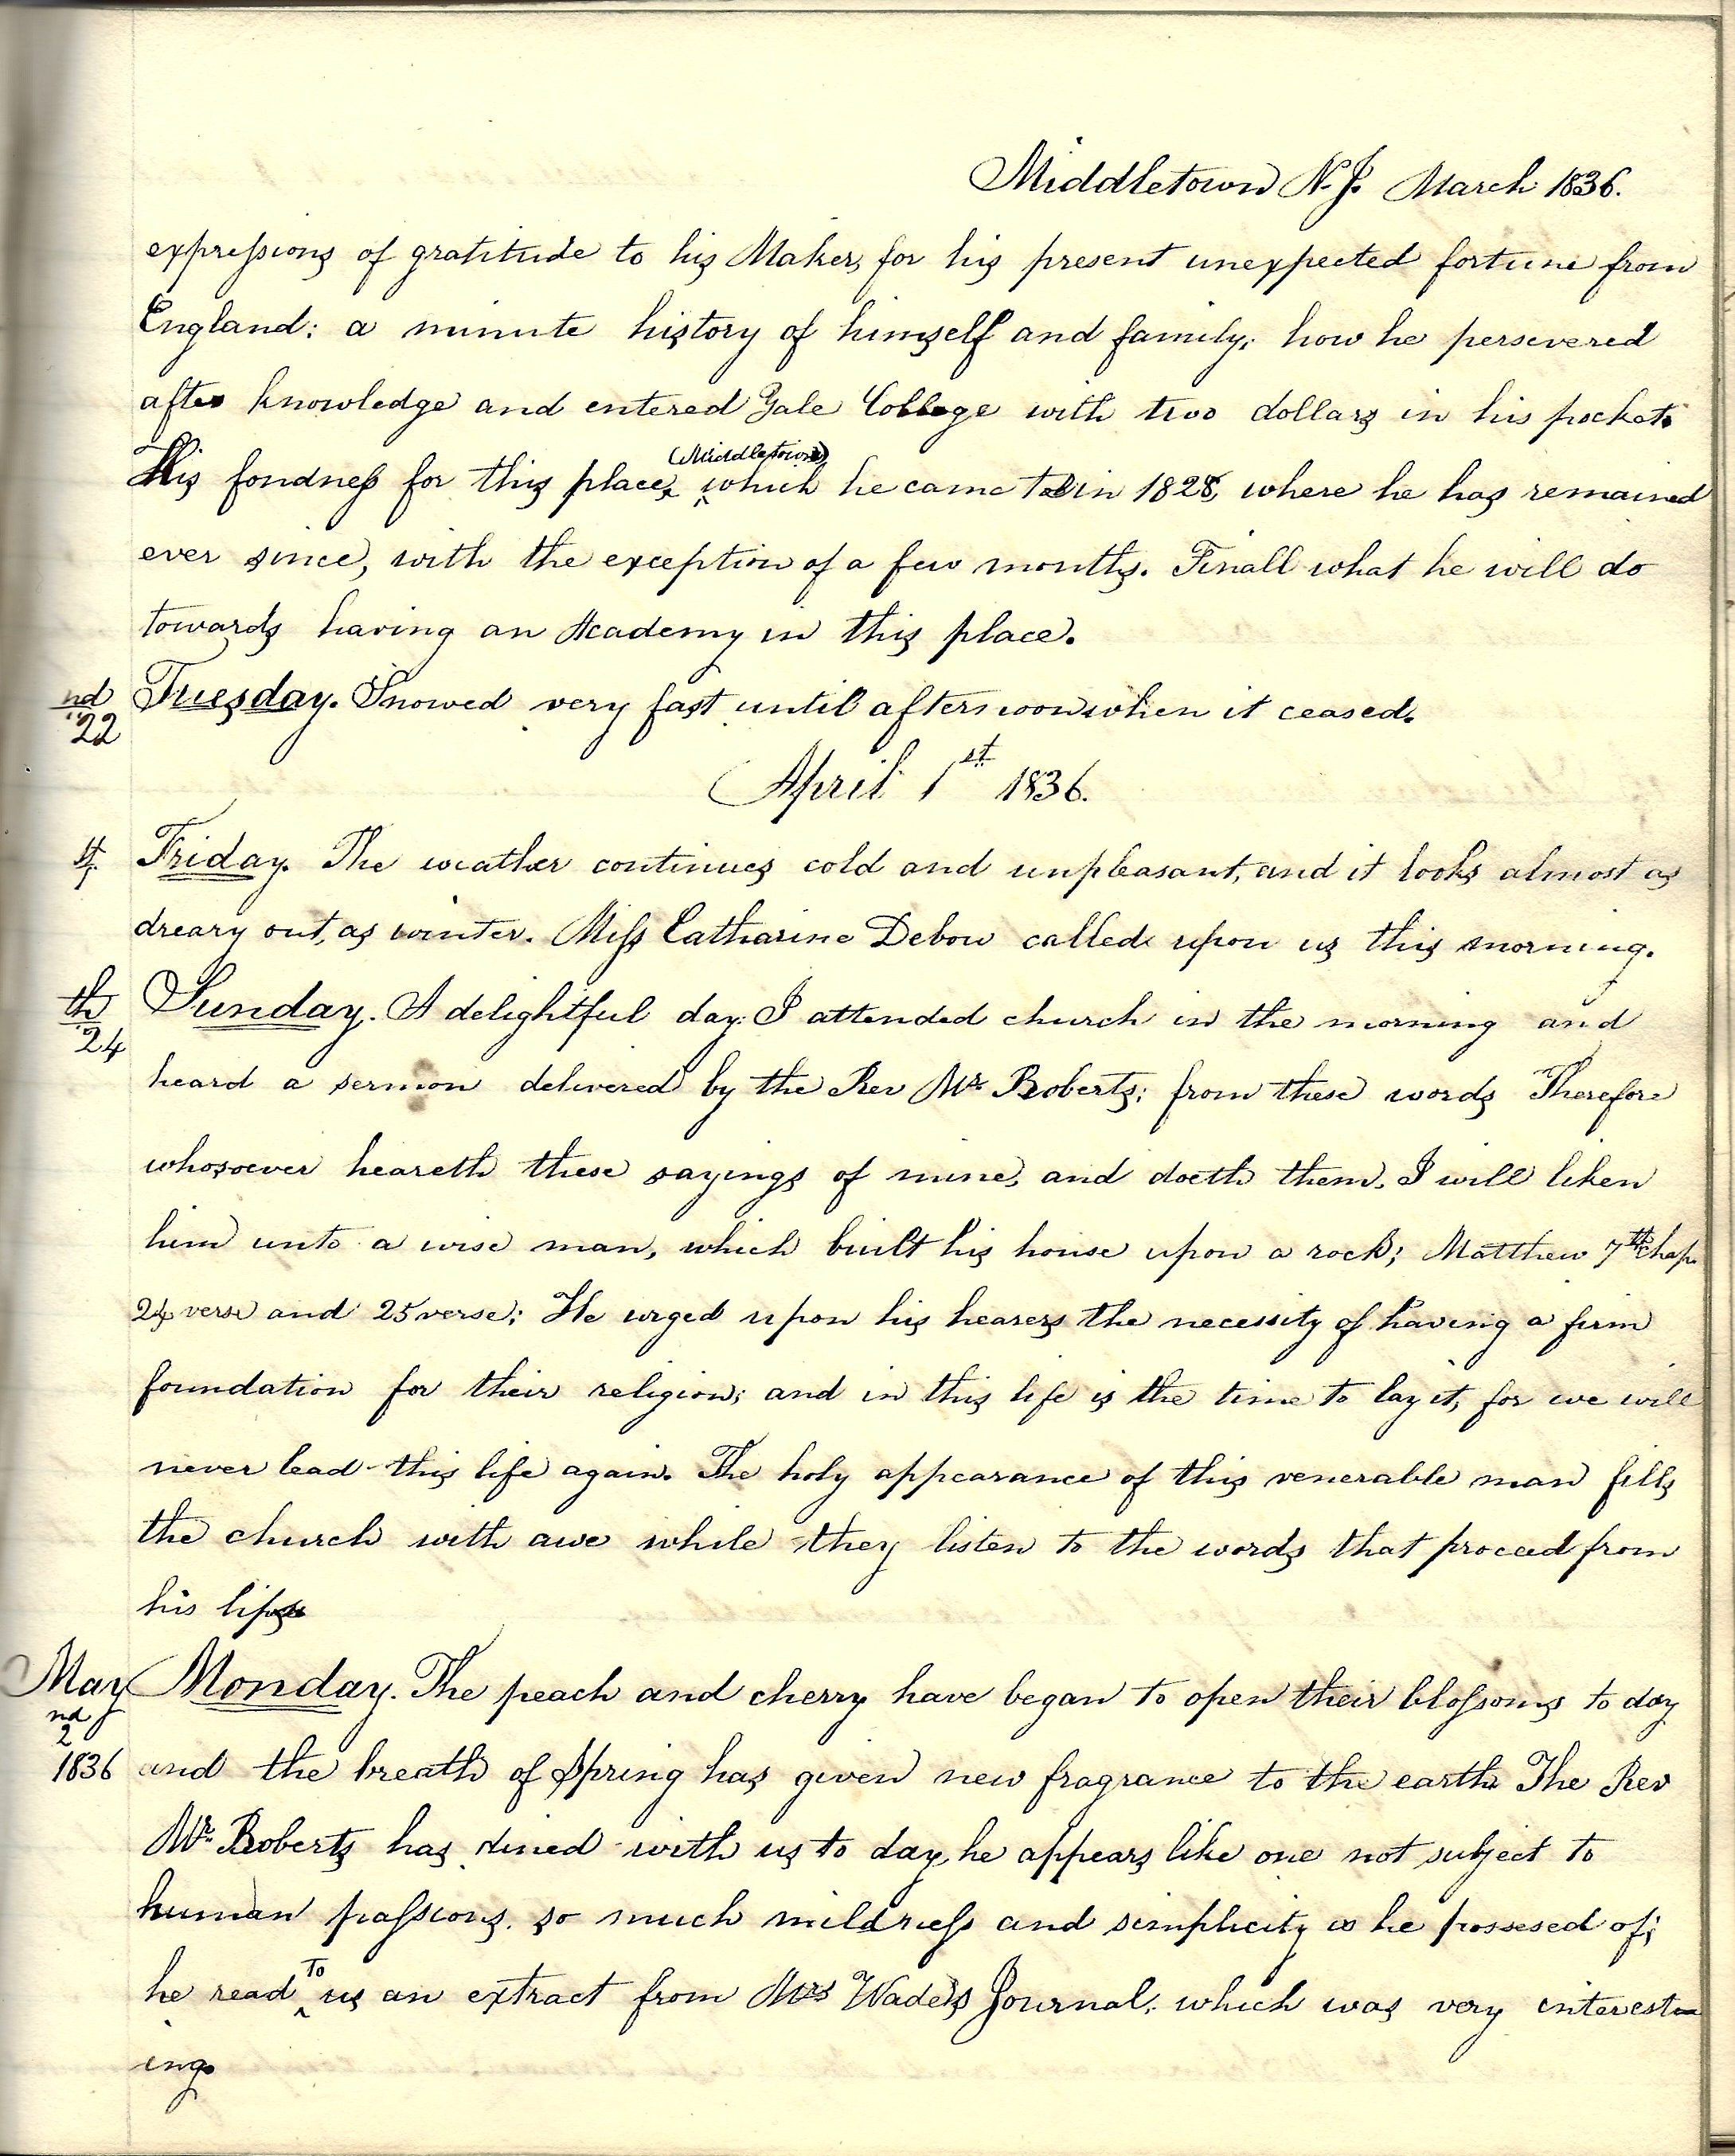 Middletown N.J. March 1836.
expressions of gratitude to his Maker, for his present unexpected fortune from
England: a minute history of himself and family, how he persevered
after knowledge and entered Yale College with two dollars in his pocket.
His fondness for this place, (Middletown) which he came to in 1828, where he has remained
ever since, with the exception of a few months. Finall what he will do
towards having an Academy in this place.
nd
22
Tuesday. Snowed very fast until afternoon when it ceased.
April 1st 1836.
st
1
Friday. The weather continues cold and unpleasant, and it looks almost as
dreary out, as winter. Miss Catharine Debow called upon us this morning.
th
24
Sunday. A delightful day: I attended church in the morning and
heard a sermon delivered by the Rev Mr. Roberts; from these words Therefore
whosoever heareth these sayings of mine, and doeth them, I will liken
him unto a wise man, which built his house upon a rock; Matthew 7th chap.
24 verse and 25 verse; He urged upon his hearers the necessity of having a firm
foundation for their religion; and in this life is the time to lay it, for we will
never lead this life again. The holy appearance of this venerable man fills
the church with awe while they listen to the words that proceed from
his lips
May
nd
2
1836
Monday. The peach and cherry have began to open their blossoms to day
and the breath of Spring has given new fragrance to the earth. The Rev
Mr. Roberts has dined with us to day, he appears like one not subject to
human passions. so much mildness and simplicity is he possesed of;
he read To us an extract from Mrs Wade's Journal, which was very interest-
ing.